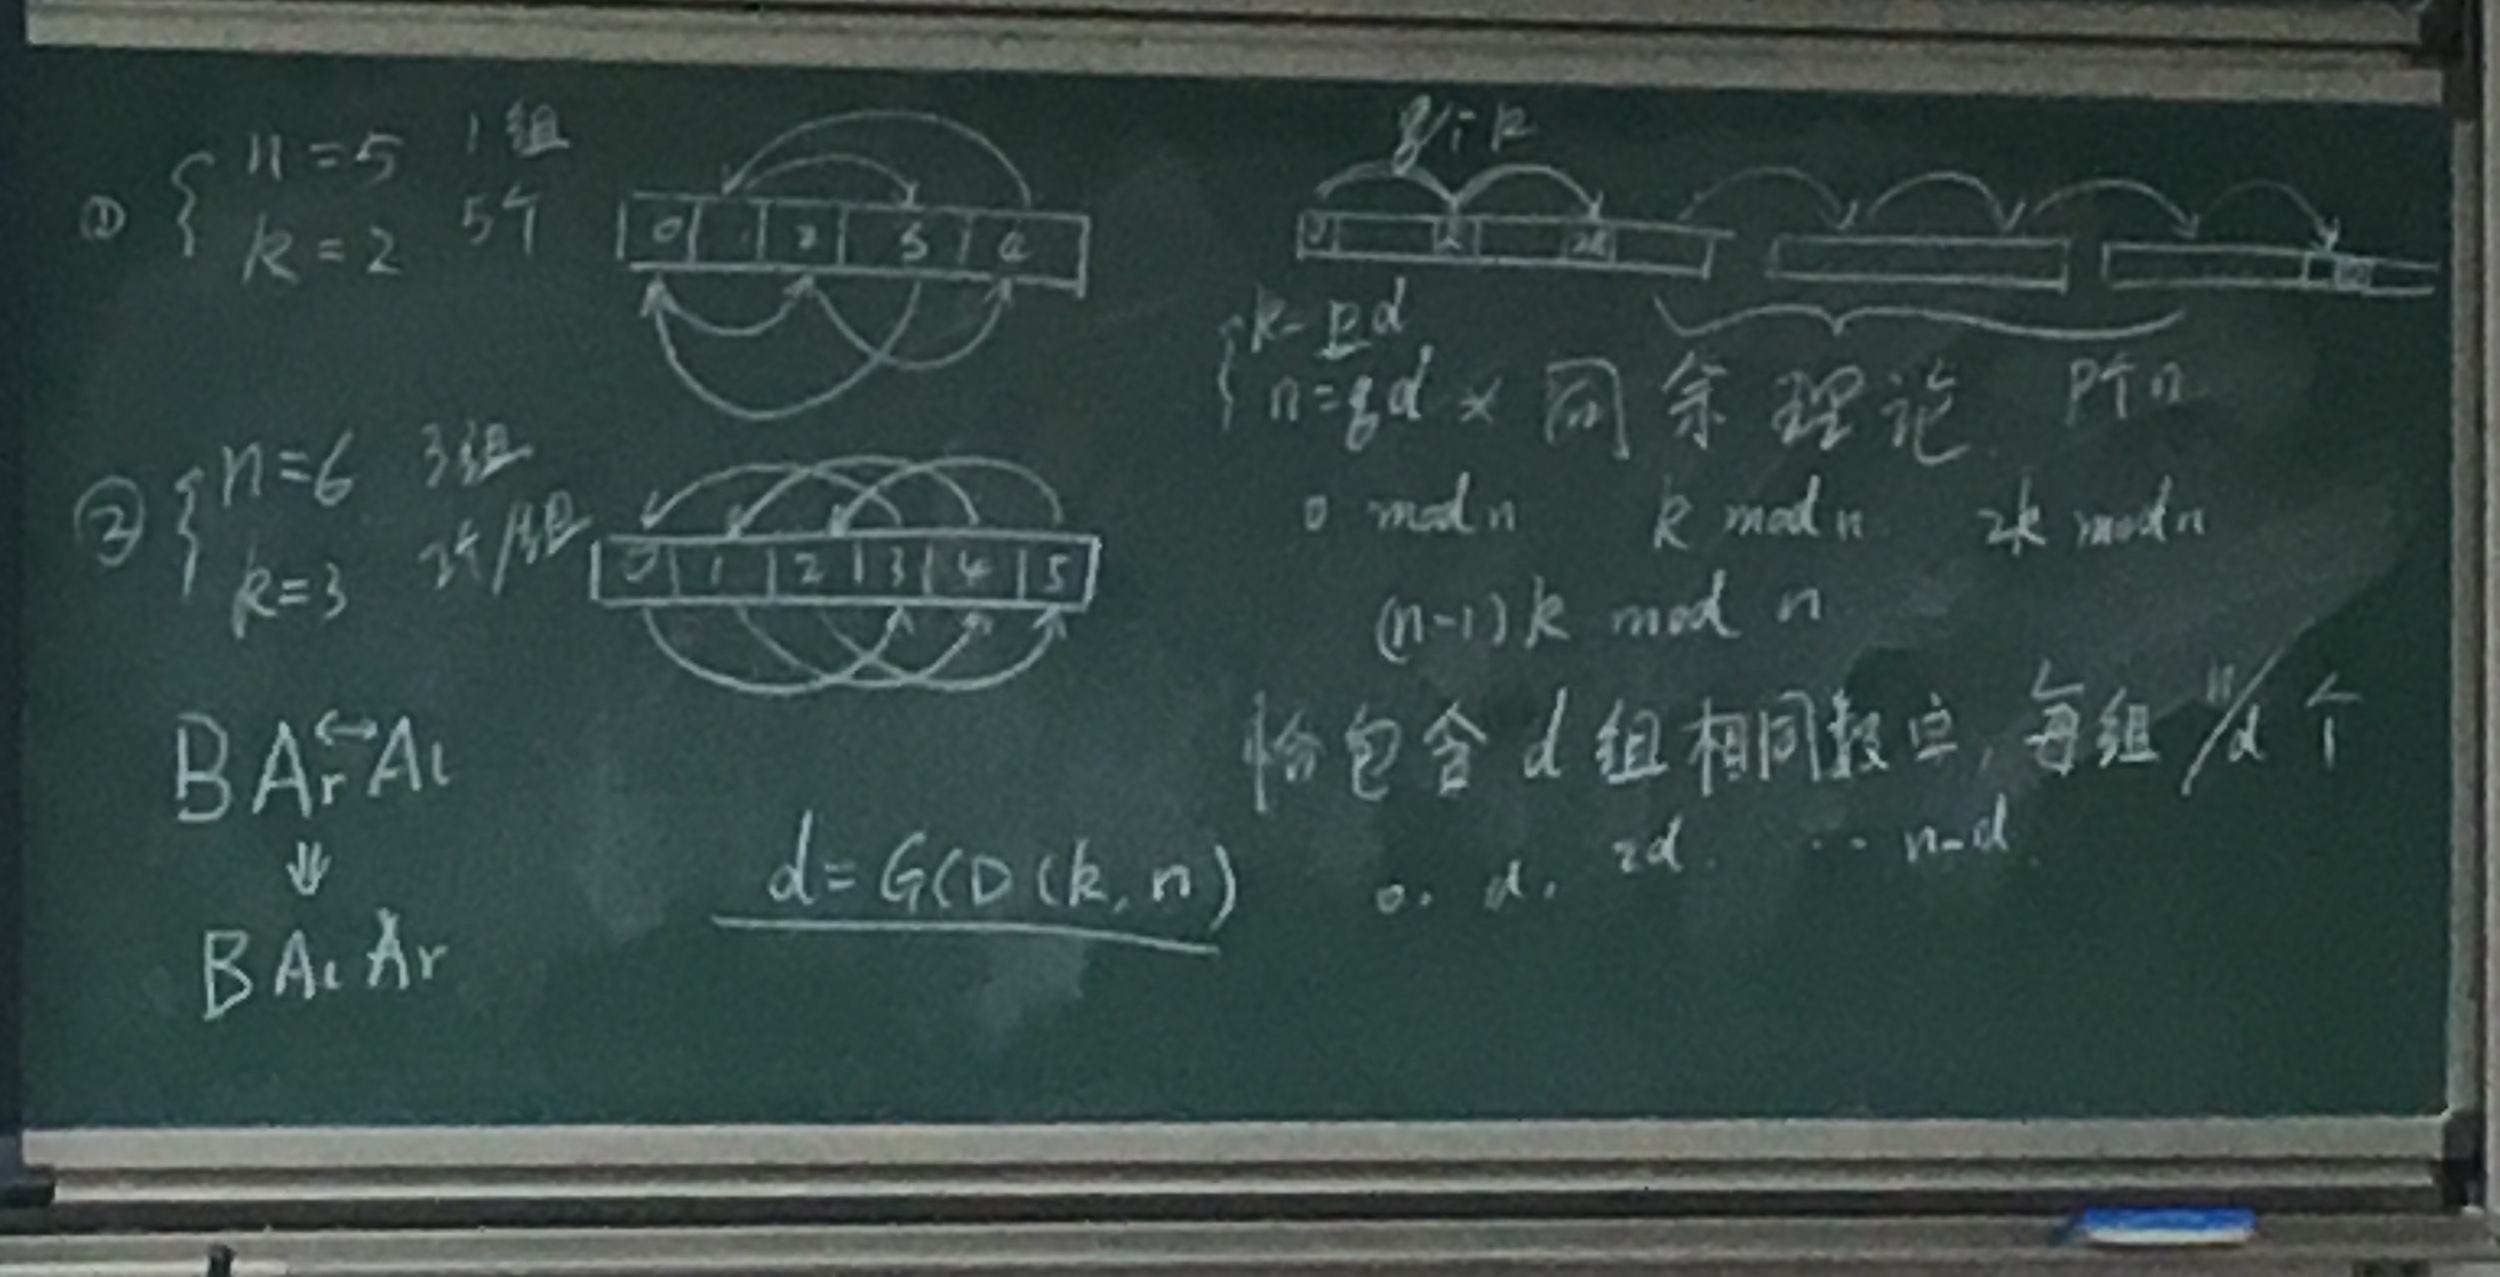 ① { n=5 1组
k=2 5个
0 1 2 3 4
② { n=6 3组
k=3 2个/组
0 1 2 3 4 5
B Ar↔Al
⇓
B Al Ar
d=GCD(k,n)
0 k 2k
{ k=pd
n=qd × 同余理论 P个n
0 mod n k mod n 2k mod n
(n-1)k mod n
恰包含d组相同数应,每组n/d个
0. d. 2d. ·· n-d.